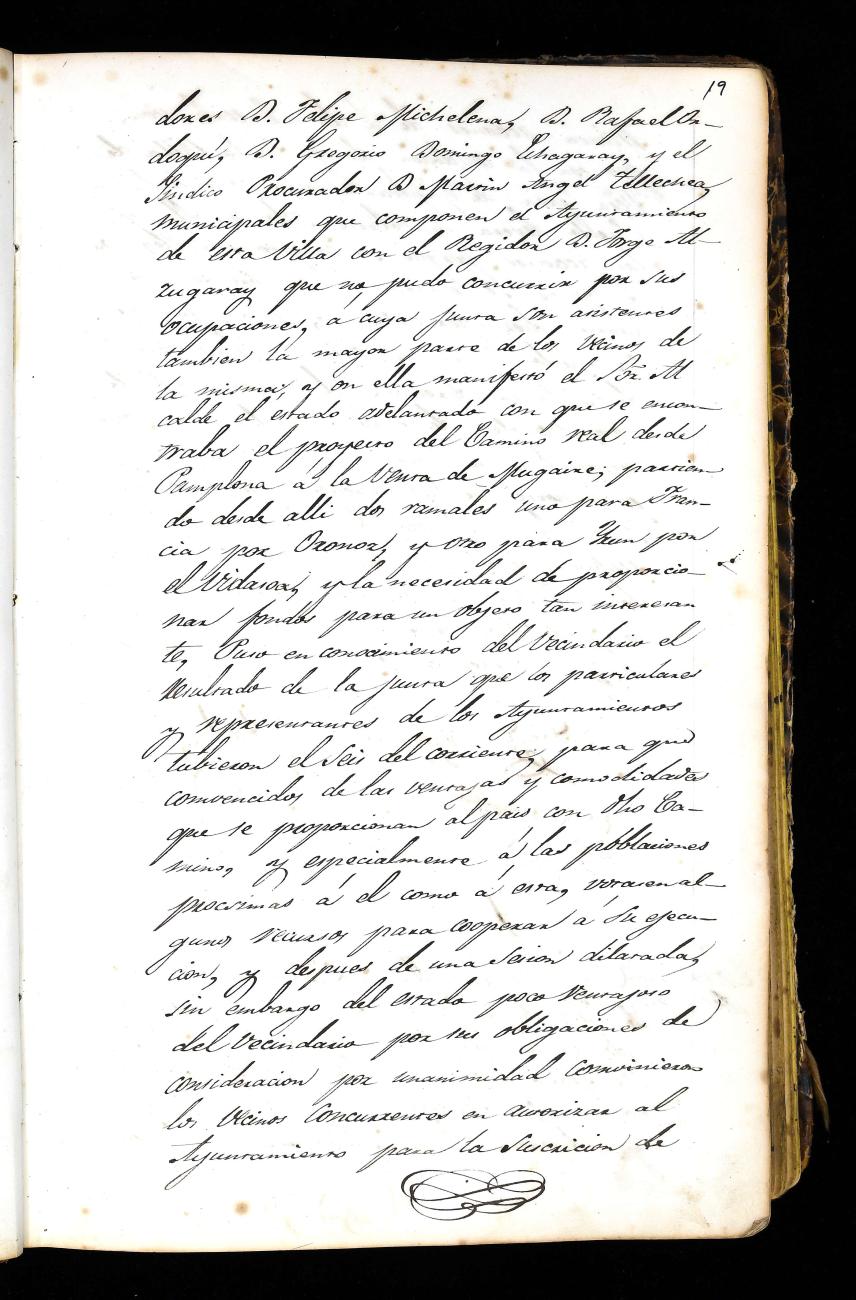 19
dores D. Felipe Michelena, D. Rafael On-
doqui, D. Gregorio Domingo Echagaray, y el
Sindico Procurador D Martin Angel Tellechea,
municipales que componen el Ayuntamiento
de esta Villa con el Regidor D. Jorge Al-
zugaray que no pudo concurrir por sus
ocupaciones, á cuya junta son asistentes
tambien la mayor parte de los vecinos de
la misma, y en ella manifestó el Sr. Al
calde el estado adelantado con que se encon-
traba el proyecto del Camino real desde
Pamplona á la Venta de Mugaire; partien
do desde alli dos ramales uno para Fran-
cia por Oronoz, y otro para Yrun por
el Vidasoa; y la necesidad de proporcio-
nar fondos para un objeto tan interesan
te, Puso en conocimiento del Vecindario el
resultado de la junta que los particulares
y representantes de los Ayuntamientos
tubieron el seis del corriente, para que
comvencidos de las ventajas y comodidades
que se proporcionan al pais con dho Ca-
mino, y especialmente á las poblaciones
procsimas á el como á esta, votasen al-
gunos recursos para cooperar á su ejecu-
cion, y despues de una sesion dilatada,
sin embargo del estado poco ventajoso
del vecindario por sus obligaciones de
consideracion por unanimidad comvinieron
los vecinos concurrentes en autorizar al
Ayuntamiento para la suscricion de